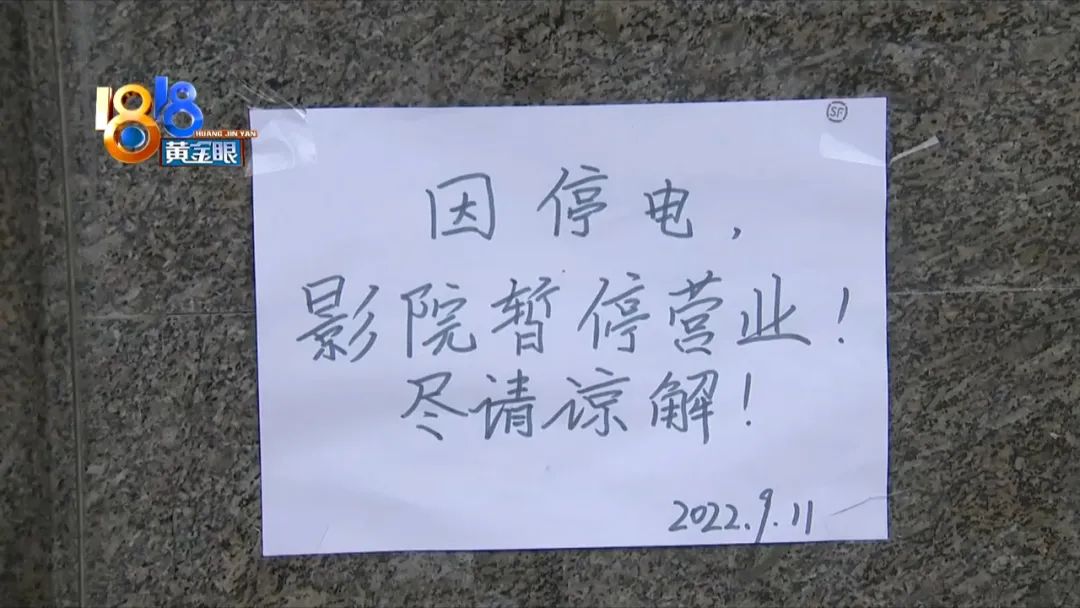 1818
HUANG JIN YAN
黄金眼
SF
因停电,
影院暂停营业!
尽请谅解!
2022.9.11